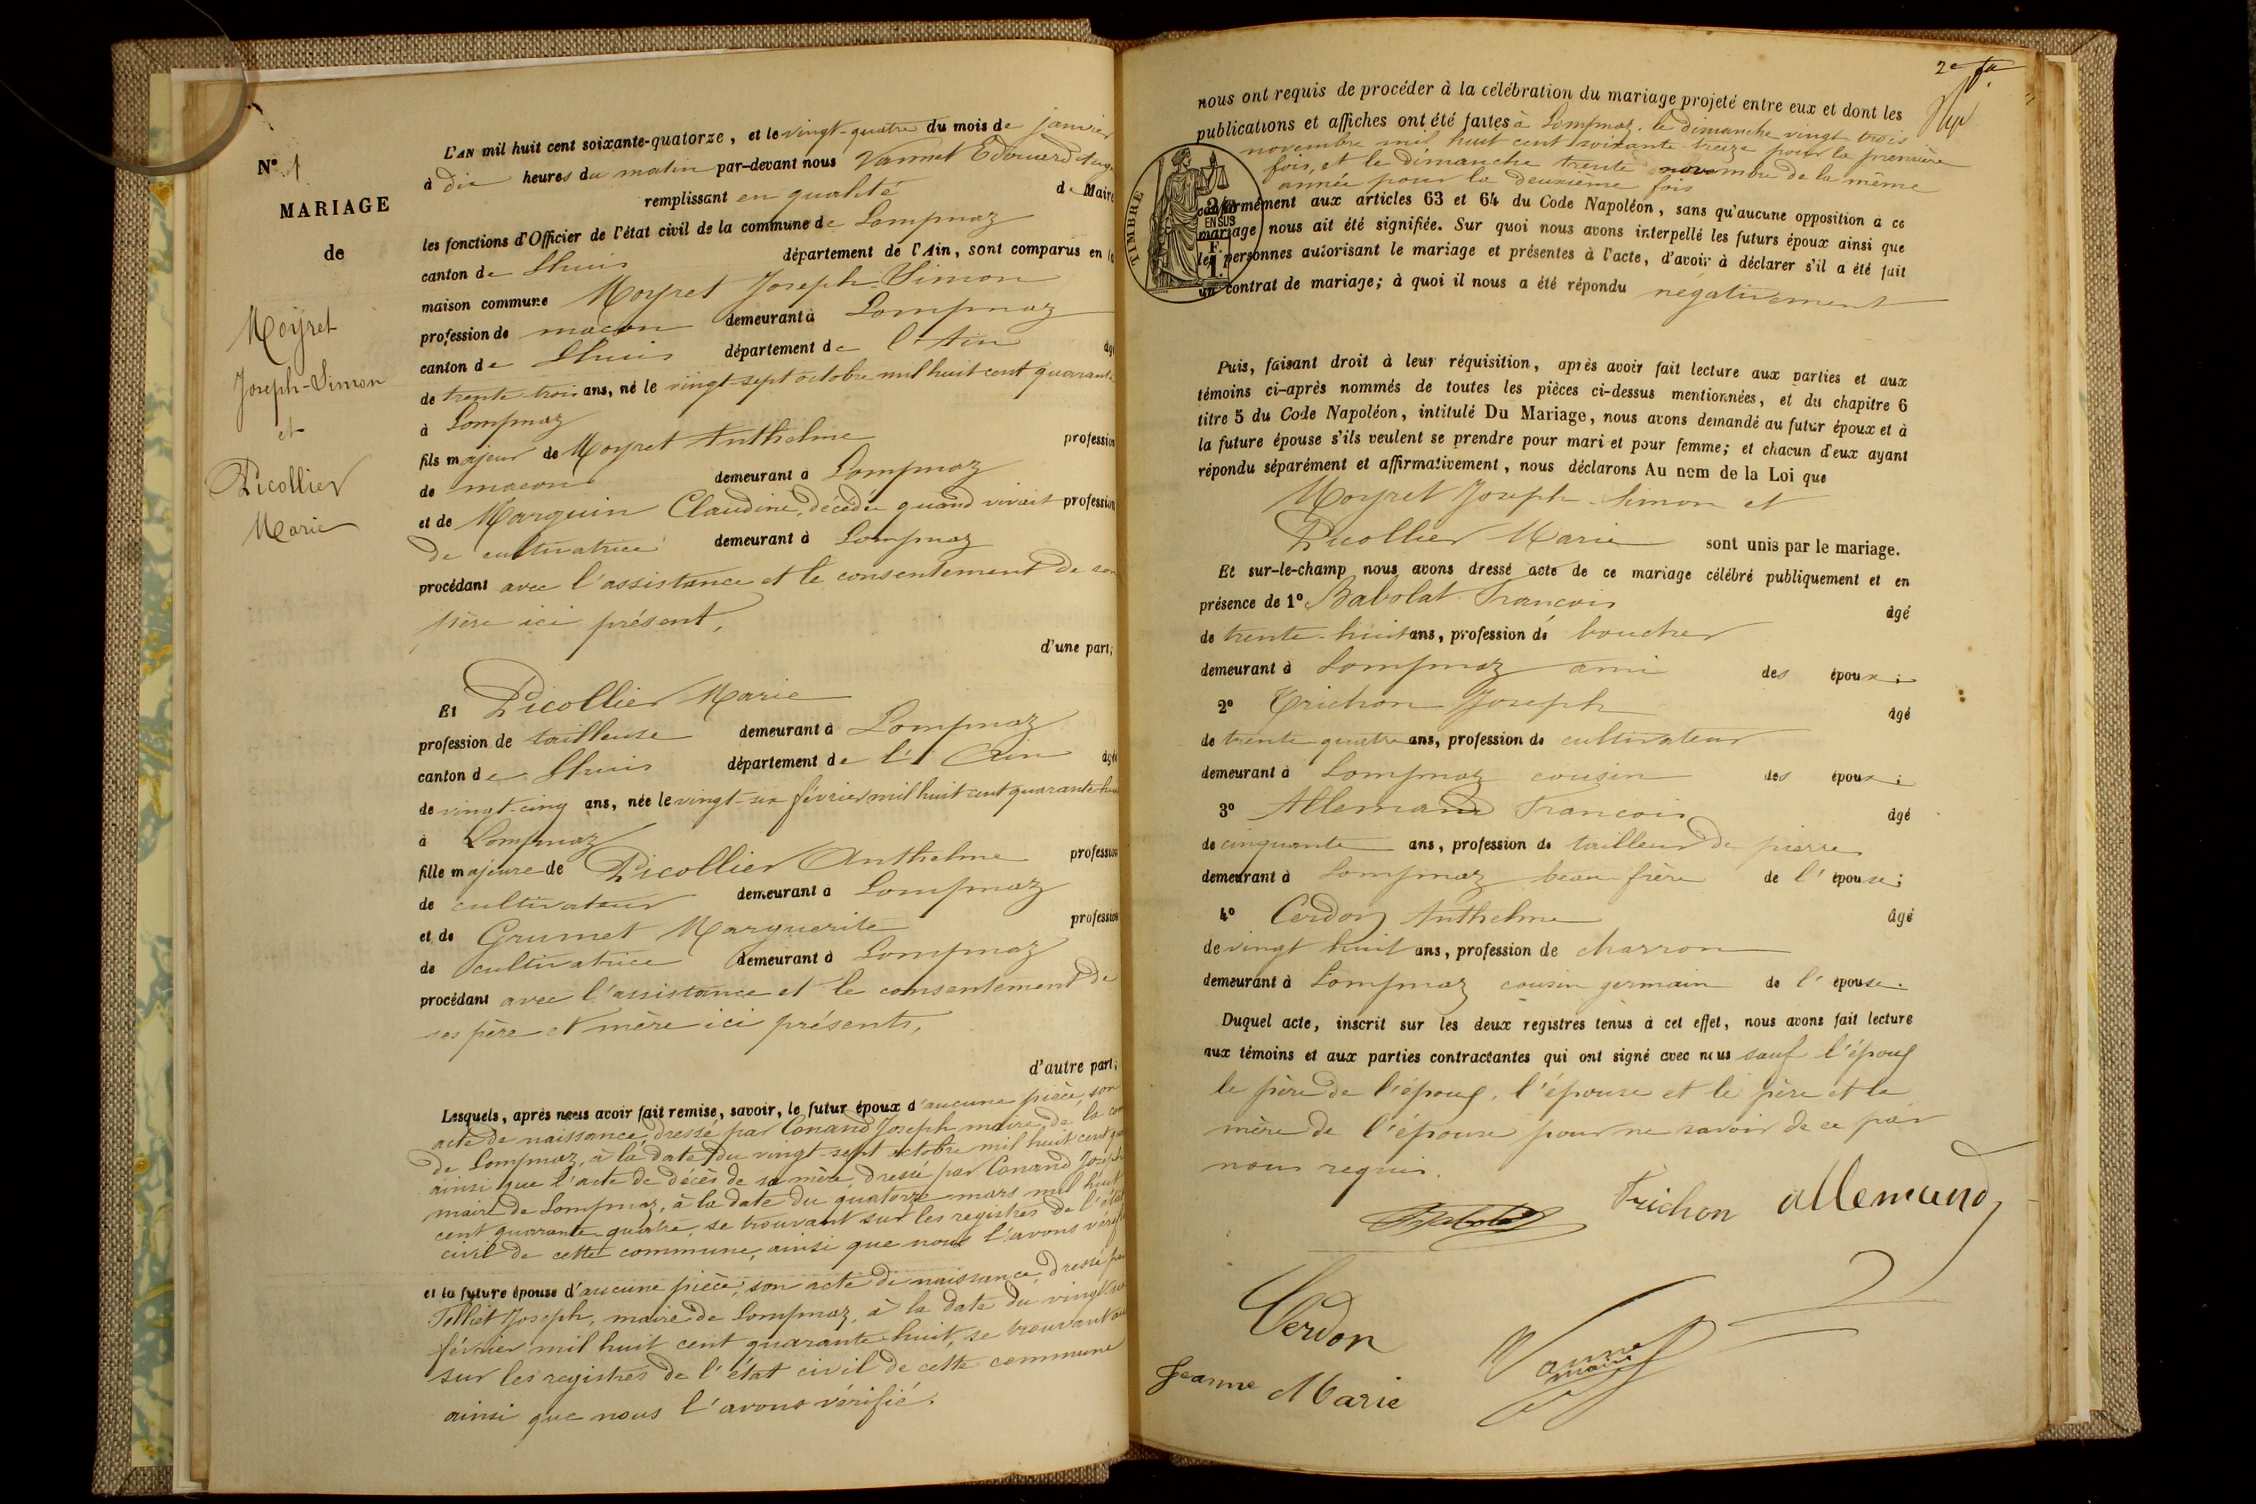 N° 1
MARIAGE
de
Moyret
Joseph-Simon
et
Picollier
Marie
L'AN mil huit cent soixante-quatorze, et le vingt-quatre du mois de janvier
à dix heures du matin par-devant nous Vannet Edouard
remplissant en qualité de Maire
les fonctions d'Officier de l'état civil de la commune de Lompnaz
canton de Lhuis département de l'Ain, sont comparus en la
maison commune Moyret Joseph-Simon
profession de maçon demeurant à Lompnaz
canton de Lhuis département de l'Ain âgé
de trente-trois ans, né le vingt-sept octobre mil huit cent quarante
à Lompnaz
fils majeur de Moyret Anthelme profession
de maçon demeurant à Lompnaz
et de Marguin Claudine, décédée quand vivait profession
de cultivatrice demeurant à Lompnaz
procédant avec l'assistance et le consentement de son
père ici présent,
d'une part;
Et Picollier Marie
profession de tailleuse demeurant à Lompnaz
canton de Lhuis département de l'Ain âgée
de vingt-cinq ans, née le vingt-six février mil huit cent quarante-huit
à Lompnaz
fille majeure de Picollier Anthelme profession
de cultivateur demeurant à Lompnaz
et de Grumet Marguerite profession
de cultivatrice demeurant à Lompnaz
procédant avec l'assistance et le consentement de
ses père et mère ici présents,
d'autre part;
Lesquels, après nous avoir fait remise, savoir, le futur époux d'aucune pièce, son
acte de naissance, dressé par Conand Joseph maire de la
de Lompnaz, à la date du vingt-sept octobre mil huit cent
ainsi que l'acte de décès de sa mère, dressé par Conand Joseph
maire de Lompnaz, à la date du quatorze mars mil huit
cent quarante-quatre, se trouvant sur les registres de l'état
civil de cette commune, ainsi que nous l'avons vérifié
et la future épouse d'aucune pièce, son acte de naissance, dressé par
Joseph, maire de Lompnaz, à la date du vingt-six
février mil huit cent quarante-huit, se trouvant
sur les registres de l'état civil de cette commune
ainsi que nous l'avons vérifié.
2e
nous ont requis de procéder à la célébration du mariage projeté entre eux et dont les
publications et affiches ont été faites à Lompnaz, le dimanche vingt trois
novembre mil huit cent soixante treize pour la première
fois, et le dimanche trente novembre de la même
année pour la deuxième fois
conformément aux articles 63 et 64 du Code Napoléon, sans qu'aucune opposition à ce
mariage nous ait été signifiée. Sur quoi nous avons interpellé les futurs époux ainsi que
les personnes autorisant le mariage et présentes à l'acte, d'avoir à déclarer s'il a été fait
un contrat de mariage; à quoi il nous a été répondu négativement
TIMBRE
EN SUS
Puis, faisant droit à leur réquisition, après avoir fait lecture aux parties et aux
témoins ci-après nommés de toutes les pièces ci-dessus mentionnées, et du chapitre 6
titre 5 du Code Napoléon, intitulé Du Mariage, nous avons demandé au futur époux et à
la future épouse s'ils veulent se prendre pour mari et pour femme; et chacun d'eux ayant
répondu séparément et affirmativement, nous déclarons Au nom de la Loi que
Moyret Joseph-Simon et
Picollier Marie sont unis par le mariage.
Et sur-le-champ nous avons dressé acte de ce mariage célébré publiquement et en
présence de 1° Babolat François âgé
de trente-huit ans, profession de boucher
demeurant à Lompnaz ami des époux;
2° Trichon Joseph âgé
de trente quatre ans, profession de cultivateur
demeurant à Lompnaz cousin des époux;
3° Allemand François âgé
de cinquante ans, profession de tailleur de pierre
demeurant à Lompnaz beau-frère de l'épouse;
4° Cerdon Anthelme âgé
de vingt huit ans, profession de charron
demeurant à Lompnaz cousin germain de l'épouse.
Duquel acte, inscrit sur les deux registres tenus à cet effet, nous avons fait lecture
aux témoins et aux parties contractantes qui ont signé avec nous sauf l'époux
le père de l'époux, l'épouse et le père et la
mère de l'épouse pour ne savoir de ce par
nous requis.
Babolat Trichon allemand
Cerdon
Vannet
maire
Jeanne Marie